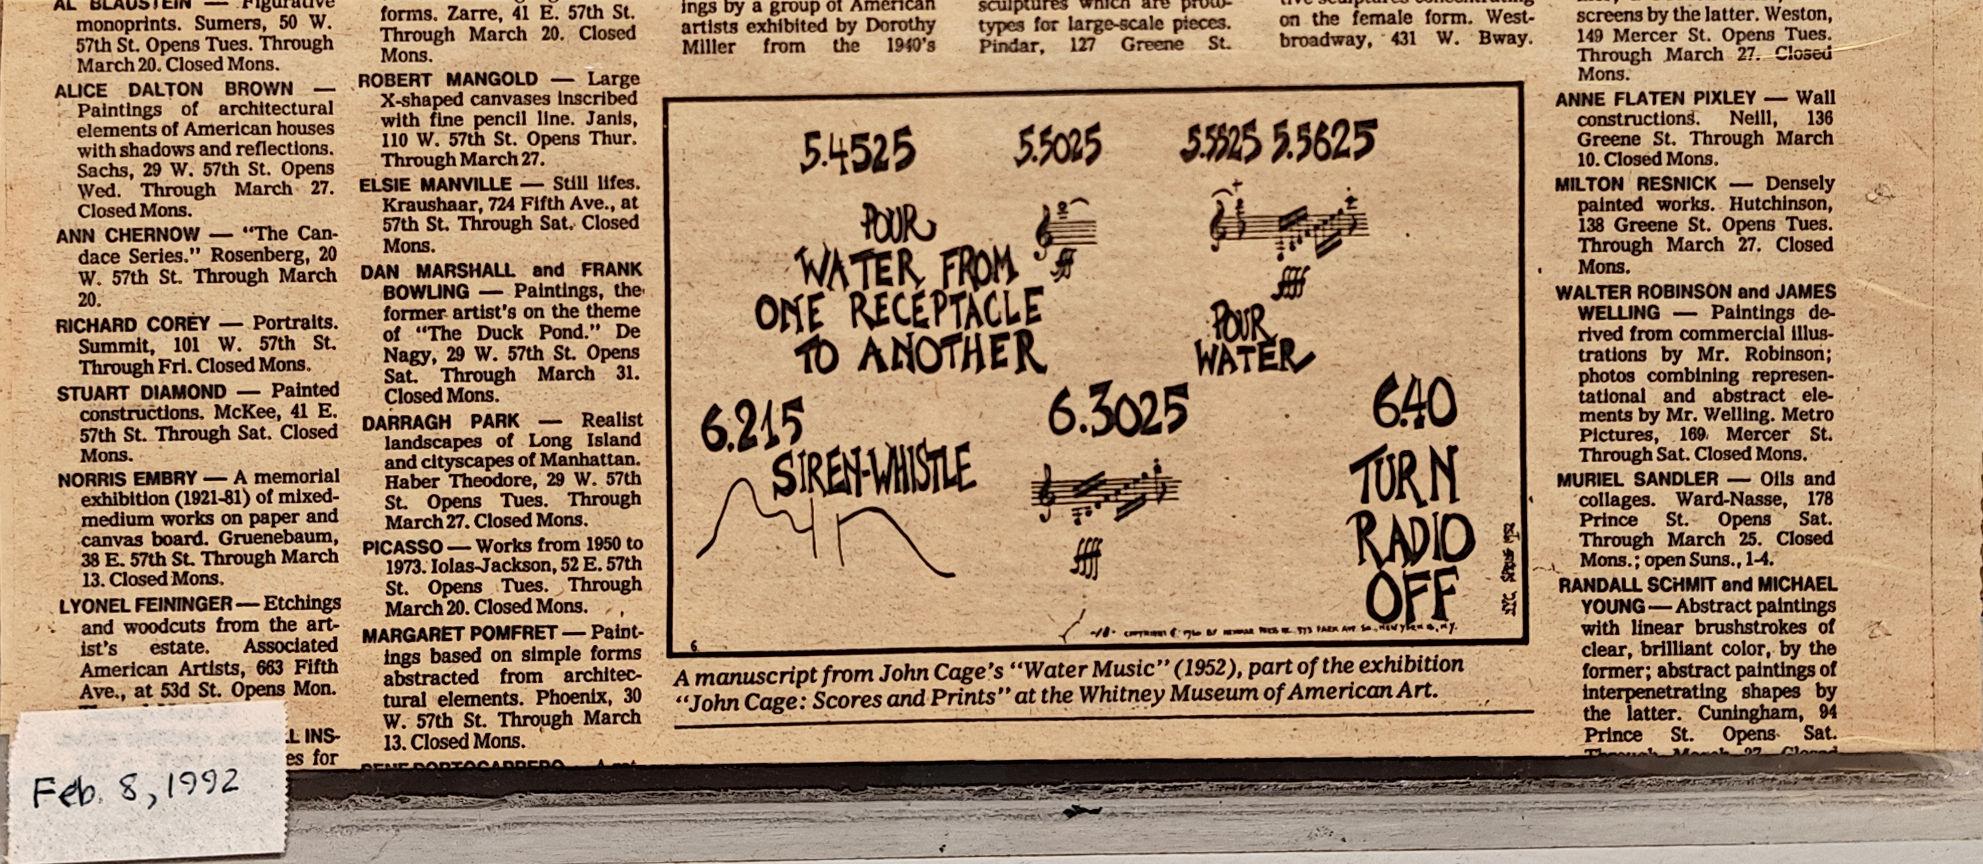 AL BLAUSTEIN — Figurative
monoprints. Sumers, 50 W.
57th St. Opens Tues. Through
March 20. Closed Mons.
ALICE DALTON BROWN —
Paintings of architectural
elements of American houses
with shadows and reflections.
Sachs, 29 W. 57th St. Opens
Wed. Through March 27.
Closed Mons.
ANN CHERNOW — "The Can-
dace Series." Rosenberg, 20
W. 57th St. Through March
20.
RICHARD COREY — Portraits.
Summit, 101 W. 57th St.
Through Fri. Closed Mons.
STUART DIAMOND — Painted
constructions. McKee, 41 E.
57th St. Through Sat. Closed
Mons.
NORRIS EMBRY — A memorial
exhibition (1921-81) of mixed-
medium works on paper and
canvas board. Gruenebaum,
38 E. 57th St. Through March
13. Closed Mons.
LYONEL FEININGER — Etchings
and woodcuts from the art-
ist's estate. Associated
American Artists, 663 Fifth
Ave., at 53d St. Opens Mon.
L INS-
es for
Feb. 8, 1992
forms. Zarre, 41 E. 57th St.
Through March 20. Closed
Mons.
ROBERT MANGOLD — Large
X-shaped canvases inscribed
with fine pencil line. Janis,
110 W. 57th St. Opens Thur.
Through March 27.
ELSIE MANVILLE — Still lifes.
Kraushaar, 724 Fifth Ave., at
57th St. Through Sat. Closed
Mons.
DAN MARSHALL and FRANK
BOWLING — Paintings, the
former artist's on the theme
of "The Duck Pond." De
Nagy, 29 W. 57th St. Opens
Sat. Through March 31.
Closed Mons.
DARRAGH PARK — Realist
landscapes of Long Island
and cityscapes of Manhattan.
Haber Theodore, 29 W. 57th
St. Opens Tues. Through
March 27. Closed Mons.
PICASSO — Works from 1950 to
1973. Iolas-Jackson, 52 E. 57th
St. Opens Tues. Through
March 20. Closed Mons.
MARGARET POMFRET — Paint-
ings based on simple forms
abstracted from architec-
tural elements. Phoenix, 30
W. 57th St. Through March
13. Closed Mons.
ings by a group of American
artists exhibited by Dorothy
Miller from the 1940's
sculptures which are proto-
types for large-scale pieces.
Pindar, 127 Greene St.
on the female form. West-
broadway, 431 W. Bway.
5.4525 5.5025 5.5525 5.5625
POUR
WATER FROM
ONE RECEPTACLE
TO ANOTHER
ff
ffff
POUR
WATER
6.215 6.3025 6.40
SIREN-WHISTLE
ffff
TURN
RADIO
OFF
6
A manuscript from John Cage's "Water Music" (1952), part of the exhibition
"John Cage: Scores and Prints" at the Whitney Museum of American Art.
screens by the latter. Weston,
149 Mercer St. Opens Tues.
Through March 27. Closed
Mons.
ANNE FLATEN PIXLEY — Wall
constructions. Neill, 136
Greene St. Through March
10. Closed Mons.
MILTON RESNICK — Densely
painted works. Hutchinson,
138 Greene St. Opens Tues.
Through March 27. Closed
Mons.
WALTER ROBINSON and JAMES
WELLING — Paintings de-
rived from commercial illus-
trations by Mr. Robinson;
photos combining represen-
tational and abstract ele-
ments by Mr. Welling. Metro
Pictures, 169 Mercer St.
Through Sat. Closed Mons.
MURIEL SANDLER — Oils and
collages. Ward-Nasse, 178
Prince St. Opens Sat.
Through March 25. Closed
Mons.; open Suns., 1-4.
RANDALL SCHMIT and MICHAEL
YOUNG — Abstract paintings
with linear brushstrokes of
clear, brilliant color, by the
former; abstract paintings of
interpenetrating shapes by
the latter. Cuningham, 94
Prince St. Opens Sat.
Through March 27. Closed